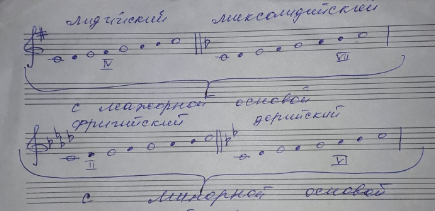 лидийский миксолидийский
IV VII
с мажорной основой
фригийский дорийский
II V
с минорной основой